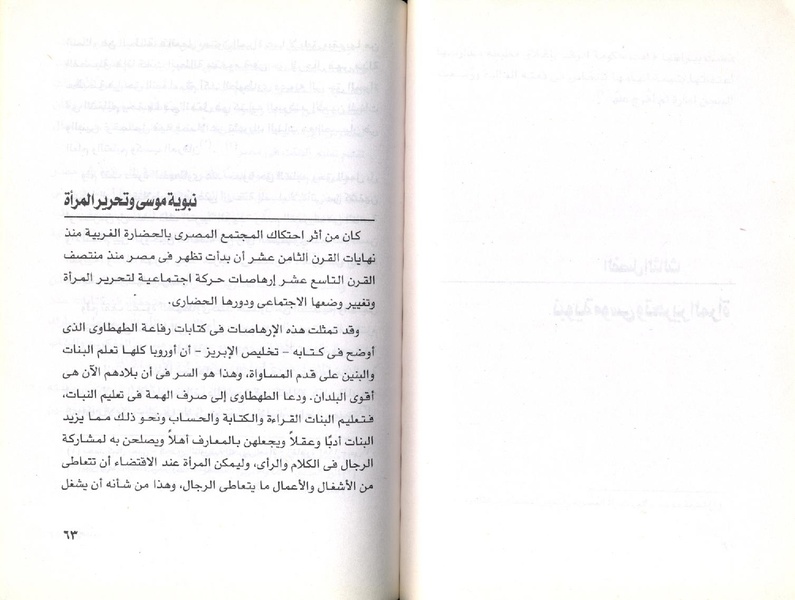 نبوية موسى وتحرير المرأة
كان من أثر احتكاك المجتمع المصرى بالحضارة الغربية منذ
نهايات القرن الثامن عشر أن بدأت تظهر فى مصر منذ منتصف
القرن التاسع عشر إرهاصات حركة اجتماعية لتحرير المرأة
وتغيير وضعها الاجتماعى ودورها الحضارى.
وقد تمثلت هذه الإرهاصات فى كتابات رفاعة الطهطاوى الذى
أوضح فى كتابه - تخليص الإبريز - أن أوروبا كلها تعلم البنات
والبنين على قدم المساواة، وهذا هو السر فى أن بلادهم الآن هى
أقوى البلدان. ودعا الطهطاوى إلى صرف الهمة فى تعليم البنات،
فتعليم البنات القراءة والكتابة والحساب ونحو ذلك مما يزيد
البنات أدبًا وعقلاً ويجعلهن بالمعارف أهلاً ويصلحن به لمشاركة
الرجال فى الكلام والرأى، وليمكن المرأة عند الاقتضاء أن تتعاطى
من الأشغال والأعمال ما يتعاطى الرجال، وهذا من شأنه أن يشغل
٦٣